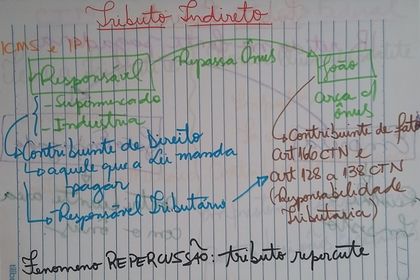 Tributo Indireto
ICMS e IPI
Repassa Ônus
Responsável
João
- Supermercado
arca c/ ônus
- Indústria
Contribuinte de Direito
aquele que a Lei manda
pagar
Responsável Tributário
Contribuinte de fato
art 166 CTN e
art 128 a 138 CTN
(Responsabilidade
Tributária)
Fenomeno REPERCUSSÃO: tributo repercute